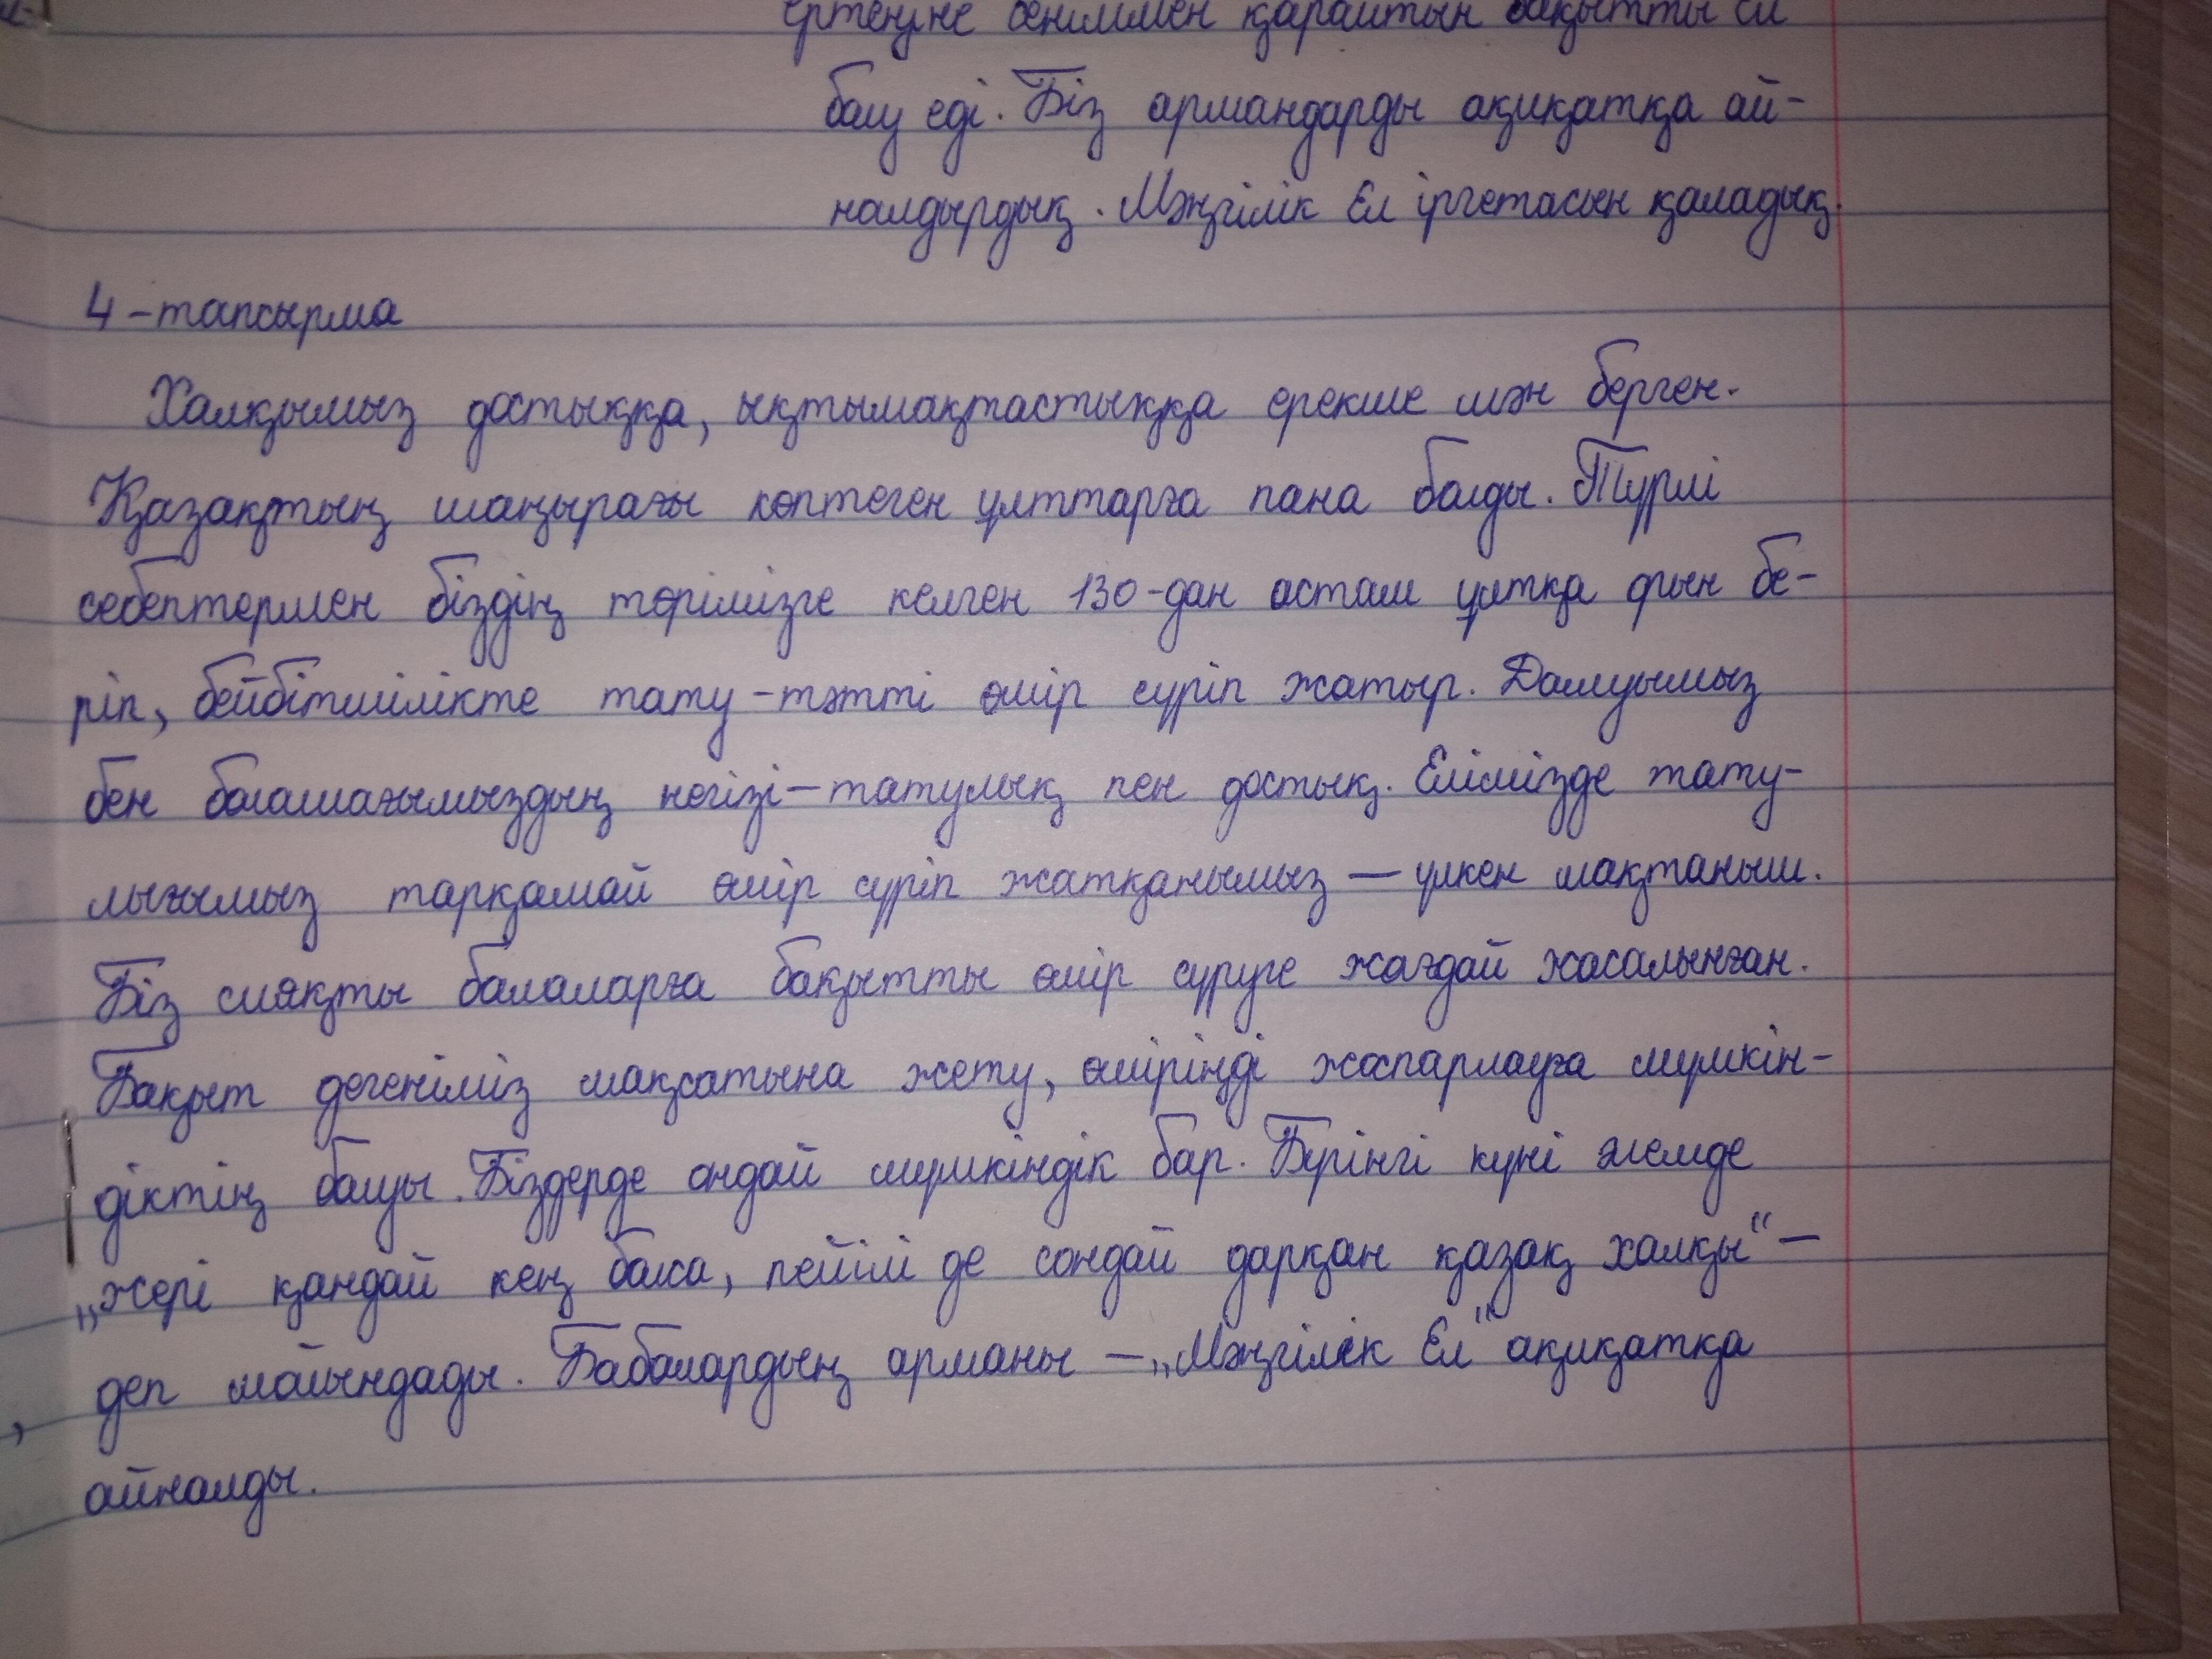 ертеңіне сеніммен қарайтын бақытты ел
болу еді. Біз армандарды ақиқатқа ай-
налдырдық. Мәңгілік Ел іргетасын қаладық.
4-тапсырма
Халқымыз достыққа, ықтымақтастыққа ерекше мән берген.
Қазақтың шаңырағы көптеген ұлттарға пана болды. Түрлі
себептермен біздің төрімізге келген 130-дан астам ұлтқа орын бе-
ріп, бейбітшілікте тату-тәтті өмір сүріп жатыр. Дамуымыз
бен болашағымыздың негізі – татулық пен достық. Елімізде тату-
лығымыз тарқамай өмір сүріп жатқанымыз — үлкен мақтаныш.
Біз сияқты балаларға бақытты өмір сүруге жағдай жасалынған.
Бақыт дегеніміз мақсатына жету, өміріңді жоспарлауға мүмкін-
діктің болуы. Біздерде ондай мүмкіндік бар. Бүгінгі күні әлемде
„жері қандай кең болса, пейілі де сондай дарқан қазақ халқы“ —
деп мойындады. Бабалардың арманы – „Мәңгілік Ел“ ақиқатқа
айналды.